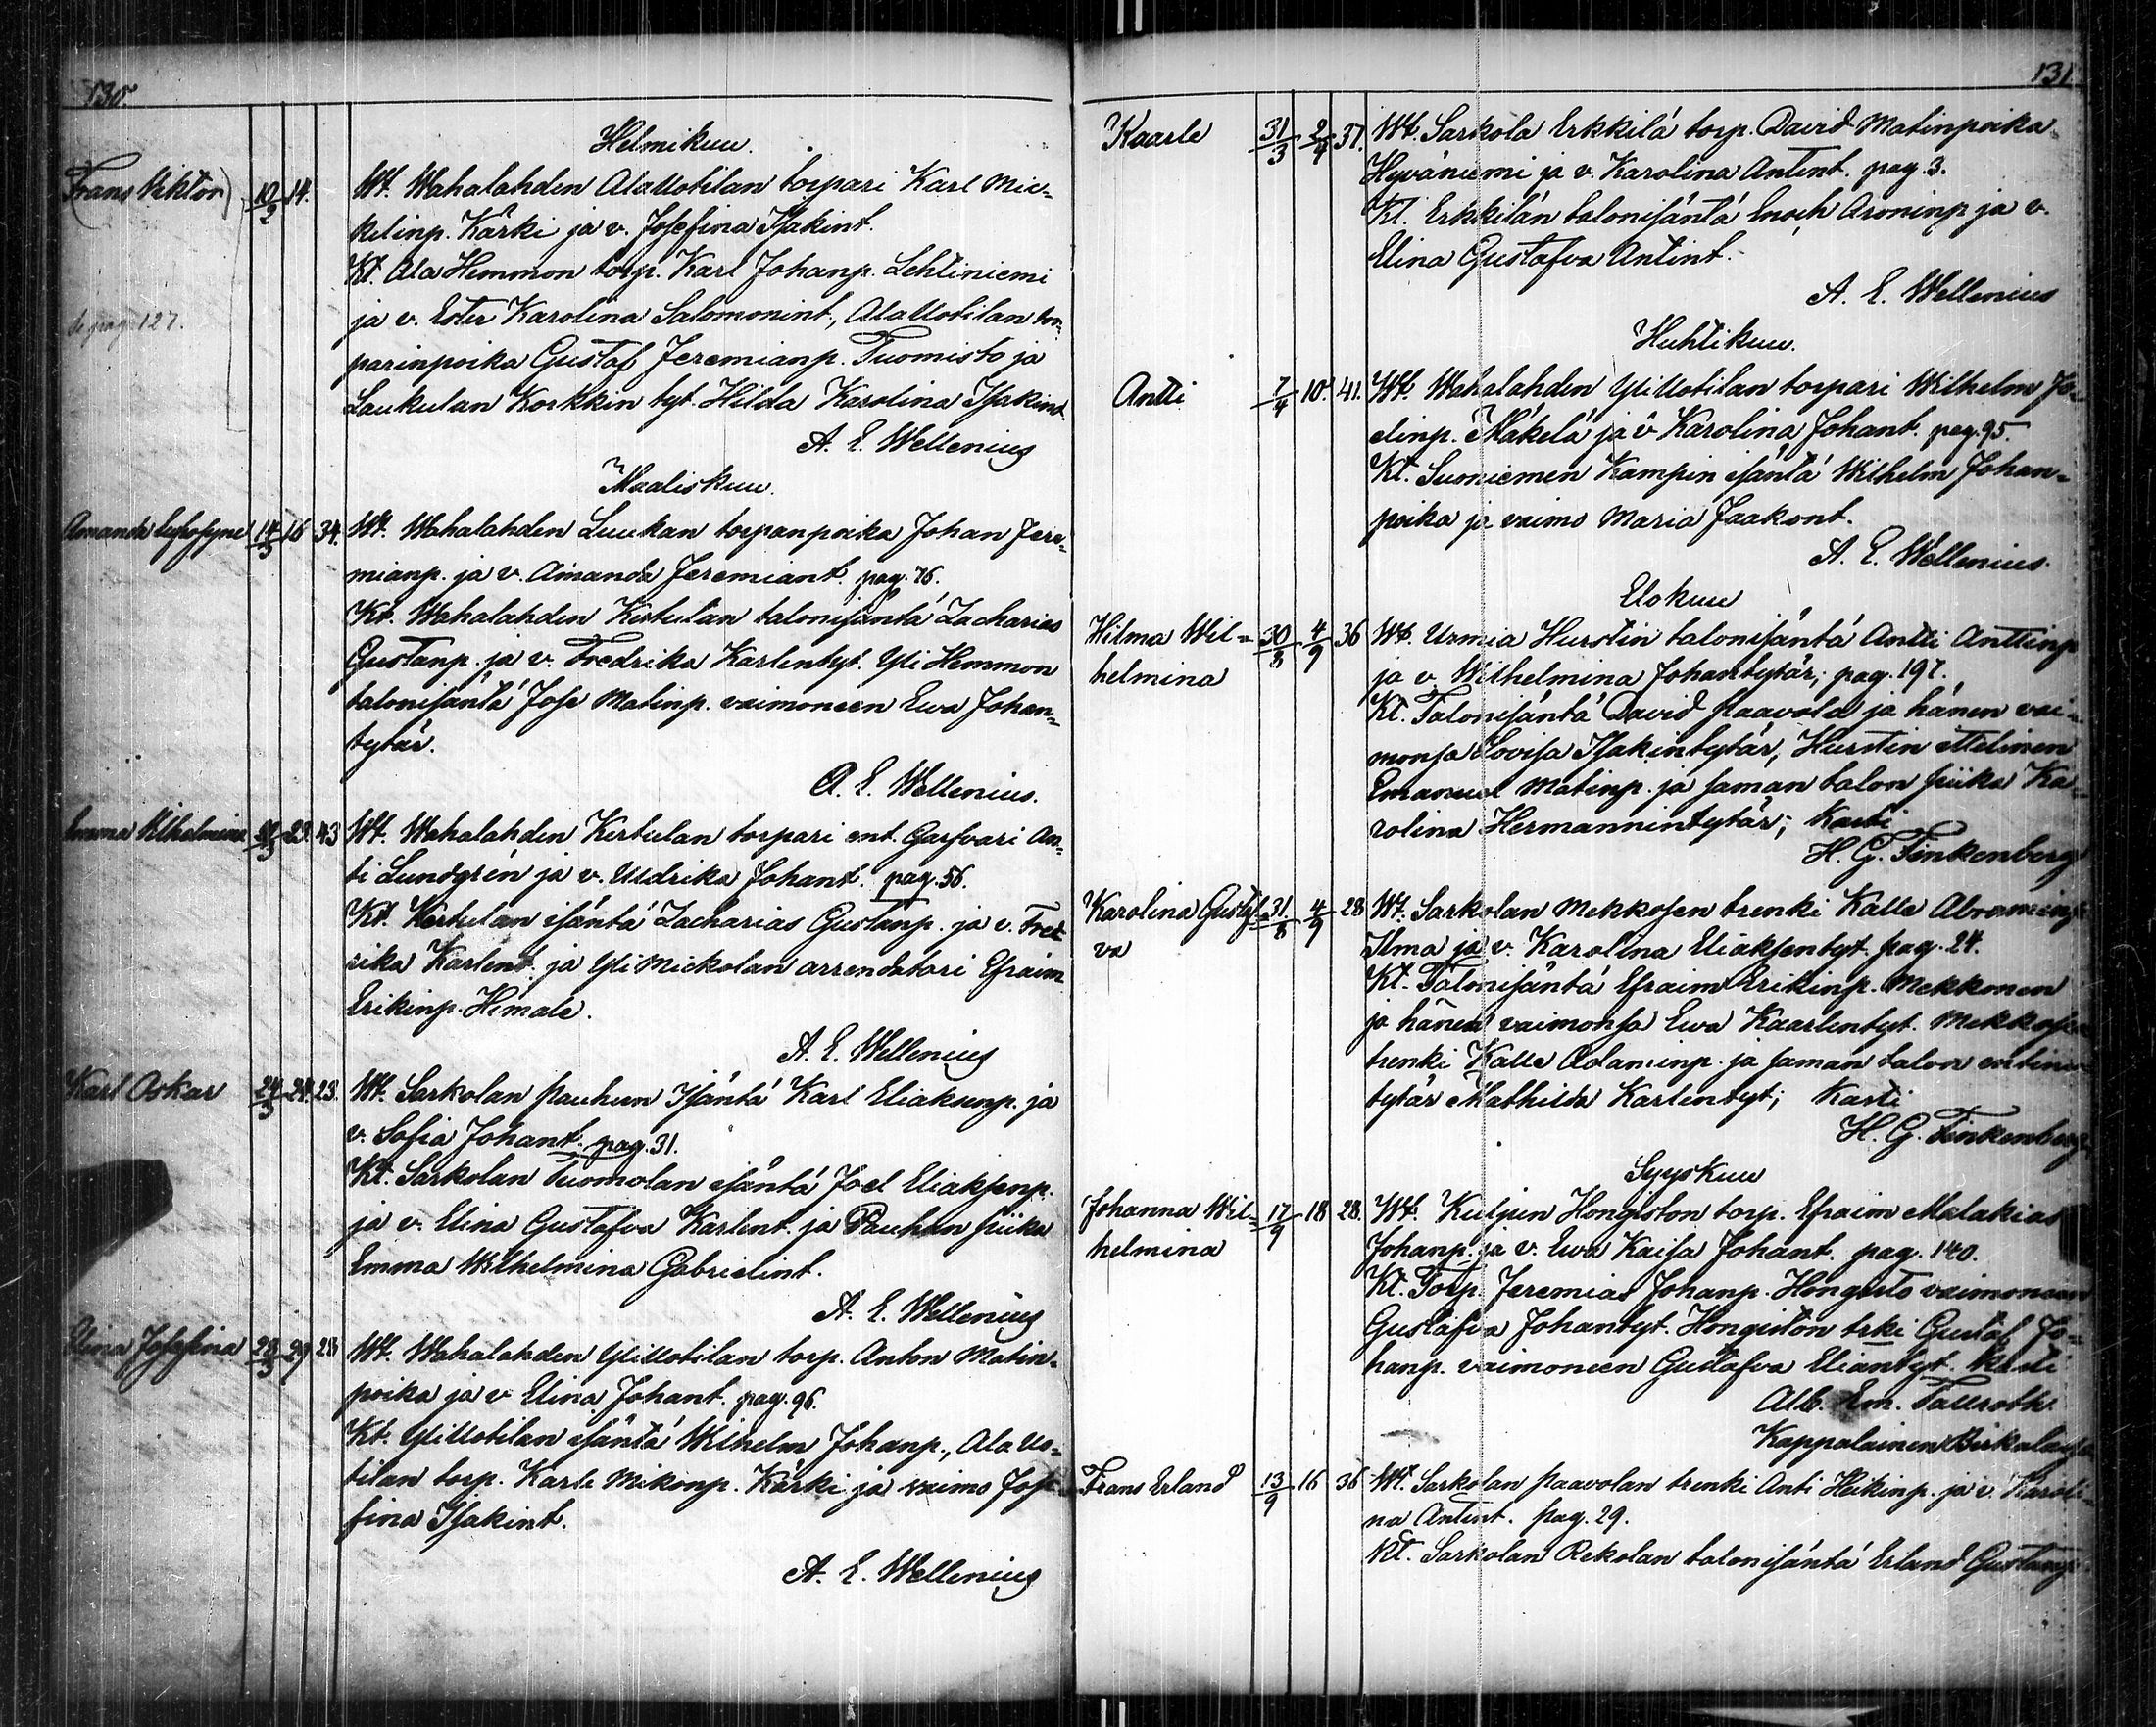 130.
Helmikuu.
Frans Viktor) 10/2 14. Wt. Wahalahden AlaUotilan torpari Karl Mic-
kelinp. Kärki ja v. Josefina Isakint.
Kt. Ala Hemmon torp. Karl Johanp. Lehtiniemi
se pag. 127. ja v. Ester Karolina Salomonint, AlaUotilan tor-
parinpoika Gustaf Jeremianp. Tuomisto ja
Laukulan Korkkin tyt. Hilda Karolina Isakint.
A. E. Wellenius
Maaliskuu.
Amanda 14/3 16 34. Wt. Wahalahden Luukan torpanpoika Johan Jere-
mianp. ja v. Amanda Jeremiant. pag. 76.
Kt. Wahalahden Kertulan talonisäntä Zacharias
Gustanp. ja v. Fredrika Karlentyt. Yli Hemmon
talonisäntä Jose Matinp. vaimoneen Ewa Johan-
tytär.
A. E. Wellenius.
Emma Vilhelmina 23. 43 Wt. Wahalahden Kertulan torpari ent. Garfvari An-
ti Lundgrén ja v. Uldrika Johant. pag. 56.
Kt. Kertulan isäntä Zacharias Gustanp. ja v. Fred
rika Karlent. ja Yli Mickolan arrendatori Efraim
Erikinp. Hemale.
A. E. Wellenius
Karl Oskar 24/3 24. 23. Wt. Sarkolan Pauhun Isäntä Karl Eliaksenp. ja
v. Sofia Johant. pag. 31.
Kt. Sarkolan Tuomolan isäntä Joel Eliaksenp.
ja v. Elina Gustafva Karlent. ja Pauhun piika
Emma Wilhelmina Gabrielint.
A. E. Wellenius
Elina Josefina 28/3 29 28 Wt. Wahalahden YliUotilan torp. Anton Matin-
poika ja v Elina Johant. pag. 96.
Kt. YliUotilan isäntä Wilhelm Johanp., Ala Uo-
tilan torp. Karle Mikonp. Kärki ja vaimo Jose
fina Isakint.
A. E. Wellenius
131
Kaarle 31/3 2/4 37. Wt. Sarkola Erkkilä torp. David Matinpoika
Hyväniemi ja v. Karolina Antint. pag. 3.
Kt. Erkkilän talonisäntä Enoch Aroninp ja v.
Elina Gustafva Antint.
A. E. Wellenius
Huhtikuu.
Antti 7/4 10. 41. Wt. Wahalahden YliUotilan torpari Wilhelm Jo-
elinp. Mäkelä ja v Karolina Johant. pag. 95.
Kt. Suoniemen Kampin isäntä Wilhelm Johan-
poika ja vaimo Maria Jaakont.
A. E. Wellenius.
Elokuu
Hilma Wil- 30/8 4/9 36 Wt. Urmia Hurstin talonisäntä Antti Anttinp
helmina ja v. Wilhelmina Johantytär; pag. 197.
Kt. Talonisäntä David Paavola ja hänen vai-
monsa Lovisa Isakintytär, Hurstin ettelinen
Emanuel Matinp. ja saman talon piika Ka-
rolina Hermannintytär; Kasti
H. G. Finkenberg
Karolina Gustaf- 31/8 4/9 28 Wt. Sarkolan Mekkosen trenki Kalle Abraminp
va Ilma ja v. Karolina Eliaksentyt. pag. 24.
Kt. Talonisäntä Efraim Erikinp. Mekkonen
ja hänen vaimonsa Ewa Kaarlentyt. Mekkosen
trenki Kalle Adaminp. ja saman talon entinen
tytär Mathilda Karlentyt; Kasti
H. G. Finkenberg
Syyskuu
Johanna Wil- 17/9 18 28. Wt. Kuljun Hongiston torp. Efraim Malakias
helmina Johanp. ja v. Ewa Kaisa Johant. pag. 140.
Kt. Torp. Jeremias Johanp. Hongisto vaimoneen
Gustafva Johantyt. Hongiston trki Gustaf Jo-
hanp. vaimoneen Gustafva Eliantyt. Kasti
Alb. Em. Tallroth
Kappalainen Birkalasa
Frans Erland 13/9 16 36 Wt. Sarkolan Paavolan trenki Anti Heikinp. ja v. Karoli-
na Antint. pag. 29.
Kt. Sarkolan Rekolan talonisäntä Erland Gustanp